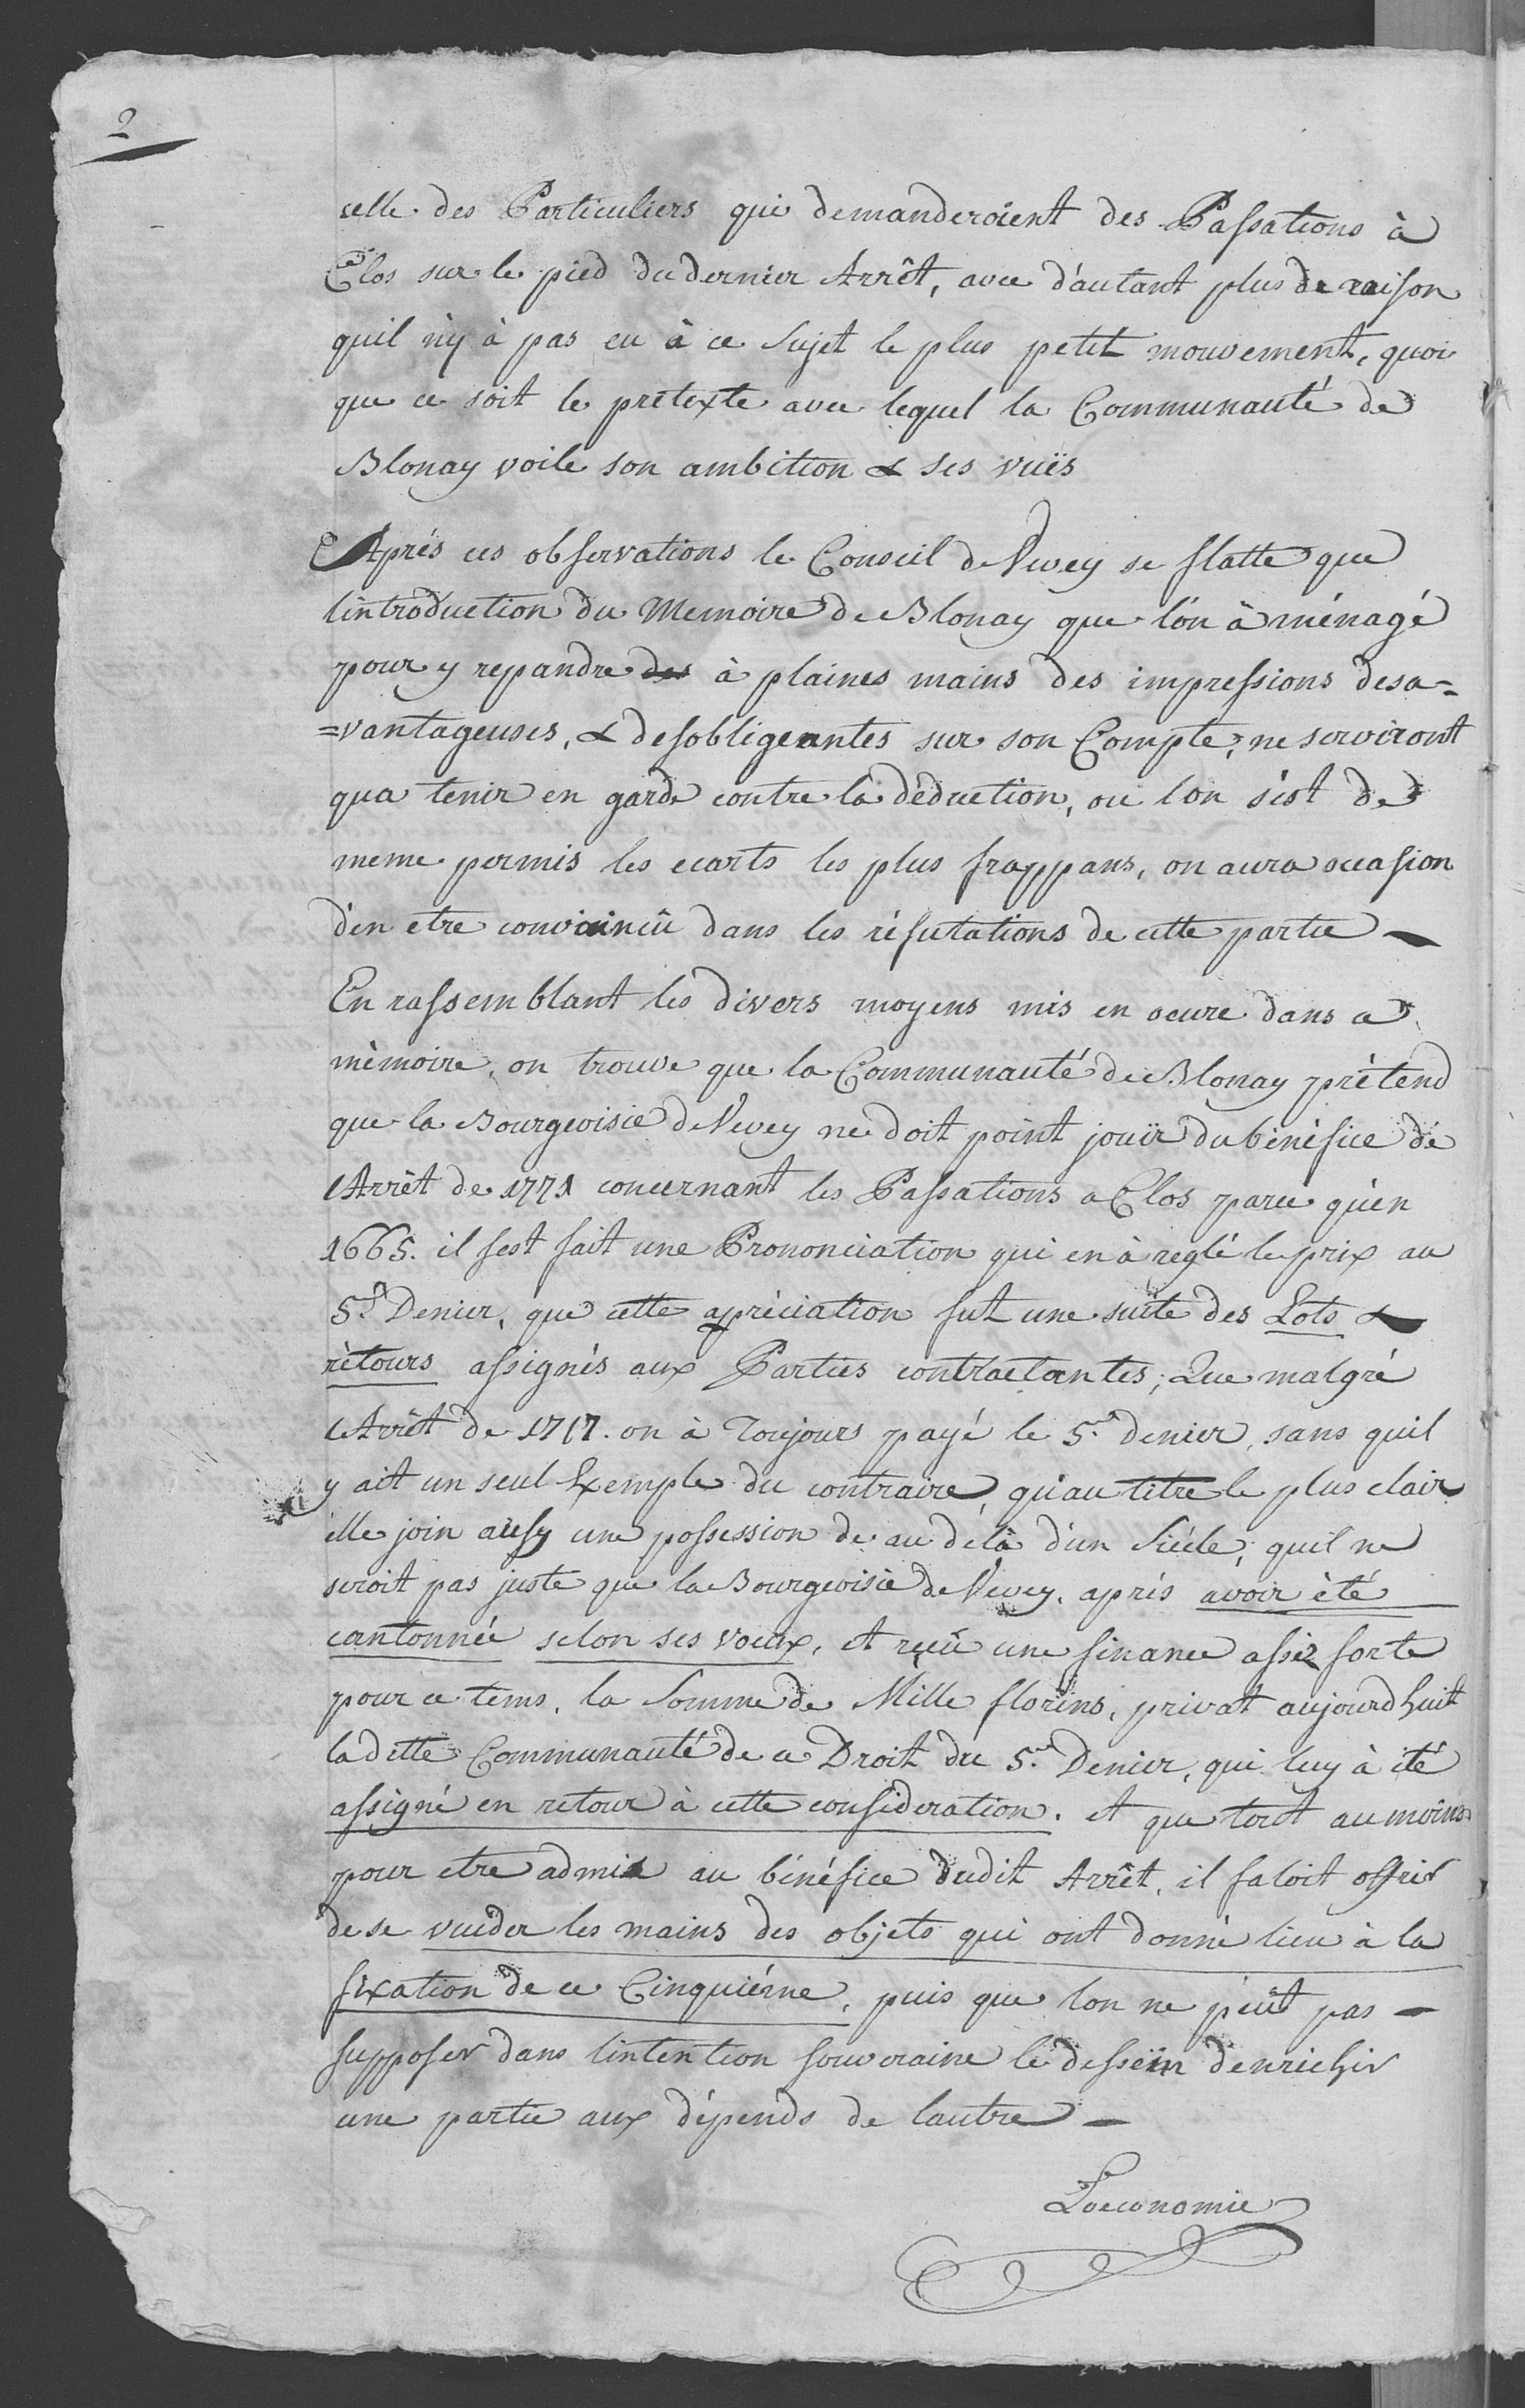 2
celle des Particuliers qui demanderoient des Passations à
Clos sur le pied du dernier Arrêt, avec d'autant plus de raison
quil n'y à pas eu à ce Sujet le plus petit mouvement, quoi
que ce soit le prétexte avec lequel la Communauté de
Blonay voile son ambition & ses vuës
Aprés ces observations le Conseil de Vevey se flatte que
lintroduction du Memoire de Blonay que lón à ménagé
pour y repandre des à plaines mains des impressions desa=
=vantageuses, & desobligeantes sur son Compte, ne serviront
qua tenir en garde contre la déduction, ou lon s'est de
meme permis les ecarts les plus frappans, on aura occasion
d'en etre convaincû dans les réfutations de cette partie
En rassemblant les divers moyens mis en oeure dans ce
mèmoire, on trouve que la Communauté de Blonay prétend
que la Bourgeoisie de Vevey ne doit point jouïr du bénéfice de
lArrêt de 1771 concernant les Passations a Clos parce qu'en
1665. il sest fait une Prononciation qui en à reglé le prix au
5e. Denier, que cette apréciation fut une suite des Lots &
rétours assignés aux Parties contractantes; Que malgré
lArrêt de 1717. on à Toujours payé le 5e. denier, sans quil
y ait un seul Exemple du contraire, qu'au titre le plus clair
elle join ausy une possession de au délà d'un Siécle, quil ne
seroit pas juste que la Bourgeoisie de Vevey, aprés avoir èté
cantonnée selon ses voeux, et reçû une finance assez forte
pour ce tems, la Somme de Mille florins, privat aujourdhuit
ladette Communauté de ce Droit du 5e. Denier, qui luy à èté
assigné en retour à cette consideration. et que tout au moins
pour etre admis au bénéfice dudit Arrêt, il faloit offrir
de se vuider les mains des objets qui ont donné lieu à la
fixation de ce Cinquiéme, puis que lon ne peût pas
supposer dans lintention souveraine le dessein denrichir
une partie aux dépends de lautre
Loeconomie